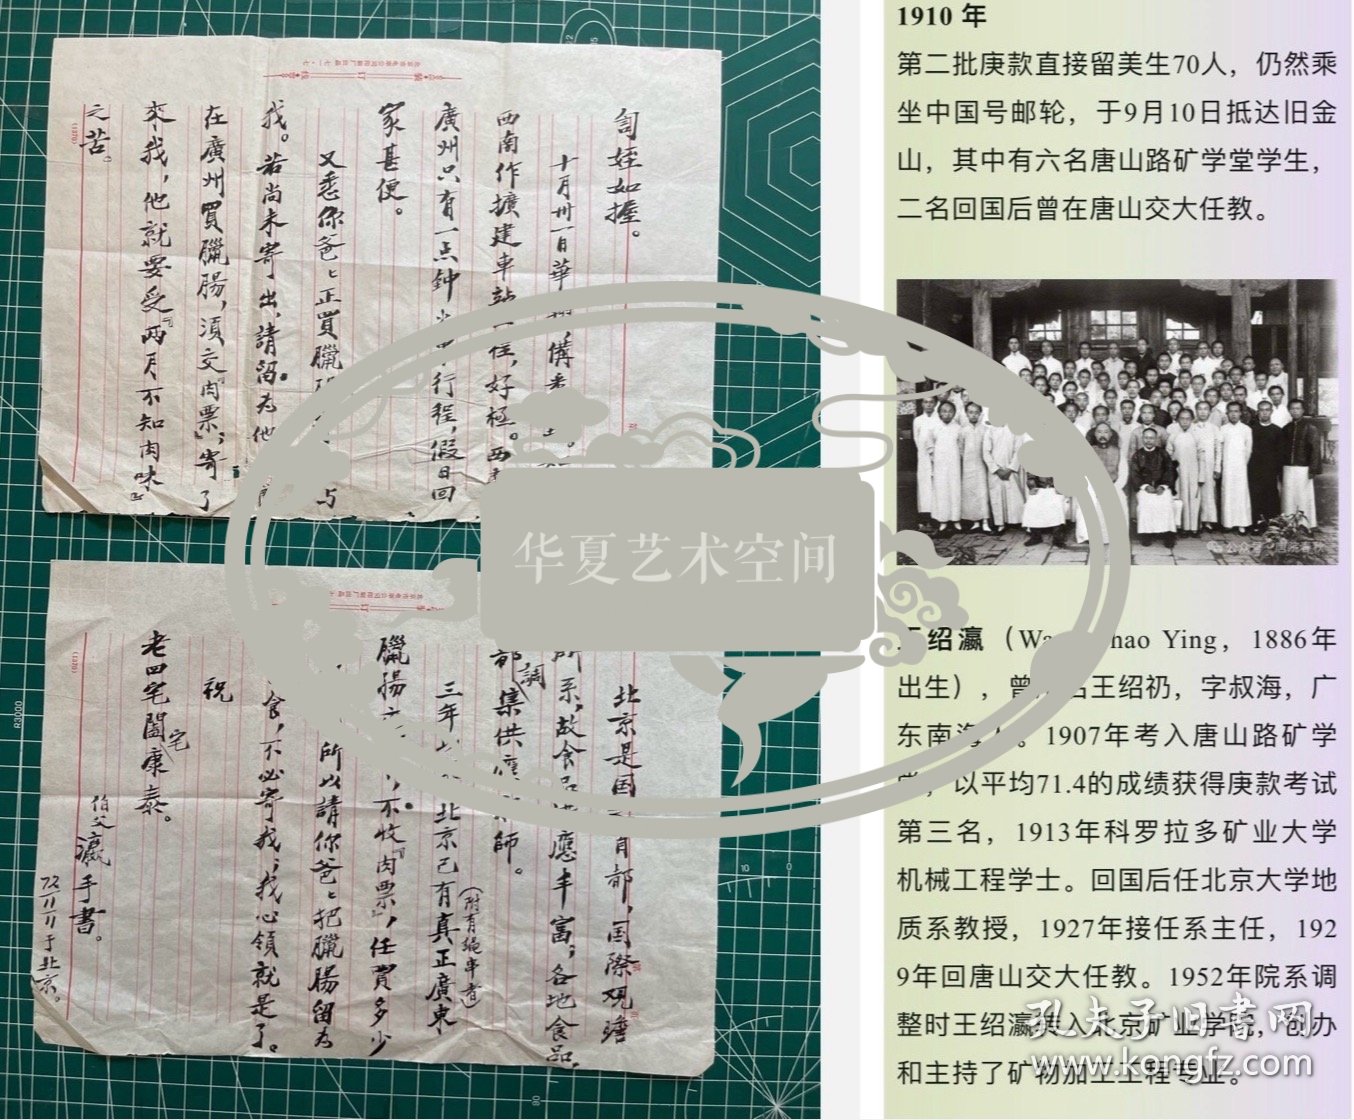 訇姪如握。
十月卅一日華
西南作擴建車站
住，好極。西
廣州只有一点钟
行程，假日回
家甚便。
又悉你爸〻正買臘
与
我。若尚未寄出，請留为他
在廣州買臘腸，須交『肉票』；寄了
來我，他就要受『兩月不知肉味』
之苦。
北京是国
首都，国際观瞻
所系，故食品
應丰富；各地食品，
都調集供應
師。
三年
北京已有真正廣東
（附有绳串者）
臘腸
，不收『肉票』，任買多少
所以請你爸〻把臘腸留为
食，不必寄我；我心領就是了。
祝
老四宅闔宅康泰。
伯父瀛手書。
72/11/11于北京。
华夏艺术空间
1910 年
第二批庚款直接留美生70人，仍然乘
坐中国号邮轮，于9月10日抵达旧金
山，其中有六名唐山路矿学堂学生，
二名回国后曾在唐山交大任教。
王绍瀛（Wa hao Ying，1886年
出生），曾 名王绍礽，字叔海，广
东南海人。1907年考入唐山路矿学
堂，以平均71.4的成绩获得庚款考试
第三名，1913年科罗拉多矿业大学
机械工程学士。回国后任北京大学地
质系教授，1927年接任系主任，192
9年回唐山交大任教。1952年院系调
整时王绍瀛 入北京矿业学院，创办
和主持了矿物加工工程专业。
孔夫子旧书网
www.kongfz.com